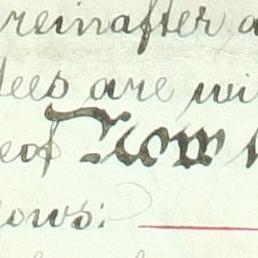 reinafter a
tees are wi
eof Now
lows: